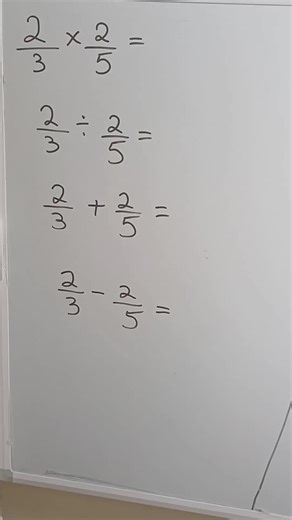 2/3 × 2/5 =
2/3 ÷ 2/5 =
2/3 + 2/5 =
2/3 − 2/5 =